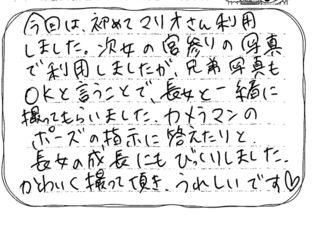 今回は、初めてマリオさん利用
しました。次女の宮参りの写真
で利用しましたが、兄弟写真も
OKと言うことで、長女と一緒に
撮ってもらいました。カメラマンの
ポーズの指示に答えたりと、
長女の成長にもびっくりしました。
かわいく撮って頂き、うれしいです♡